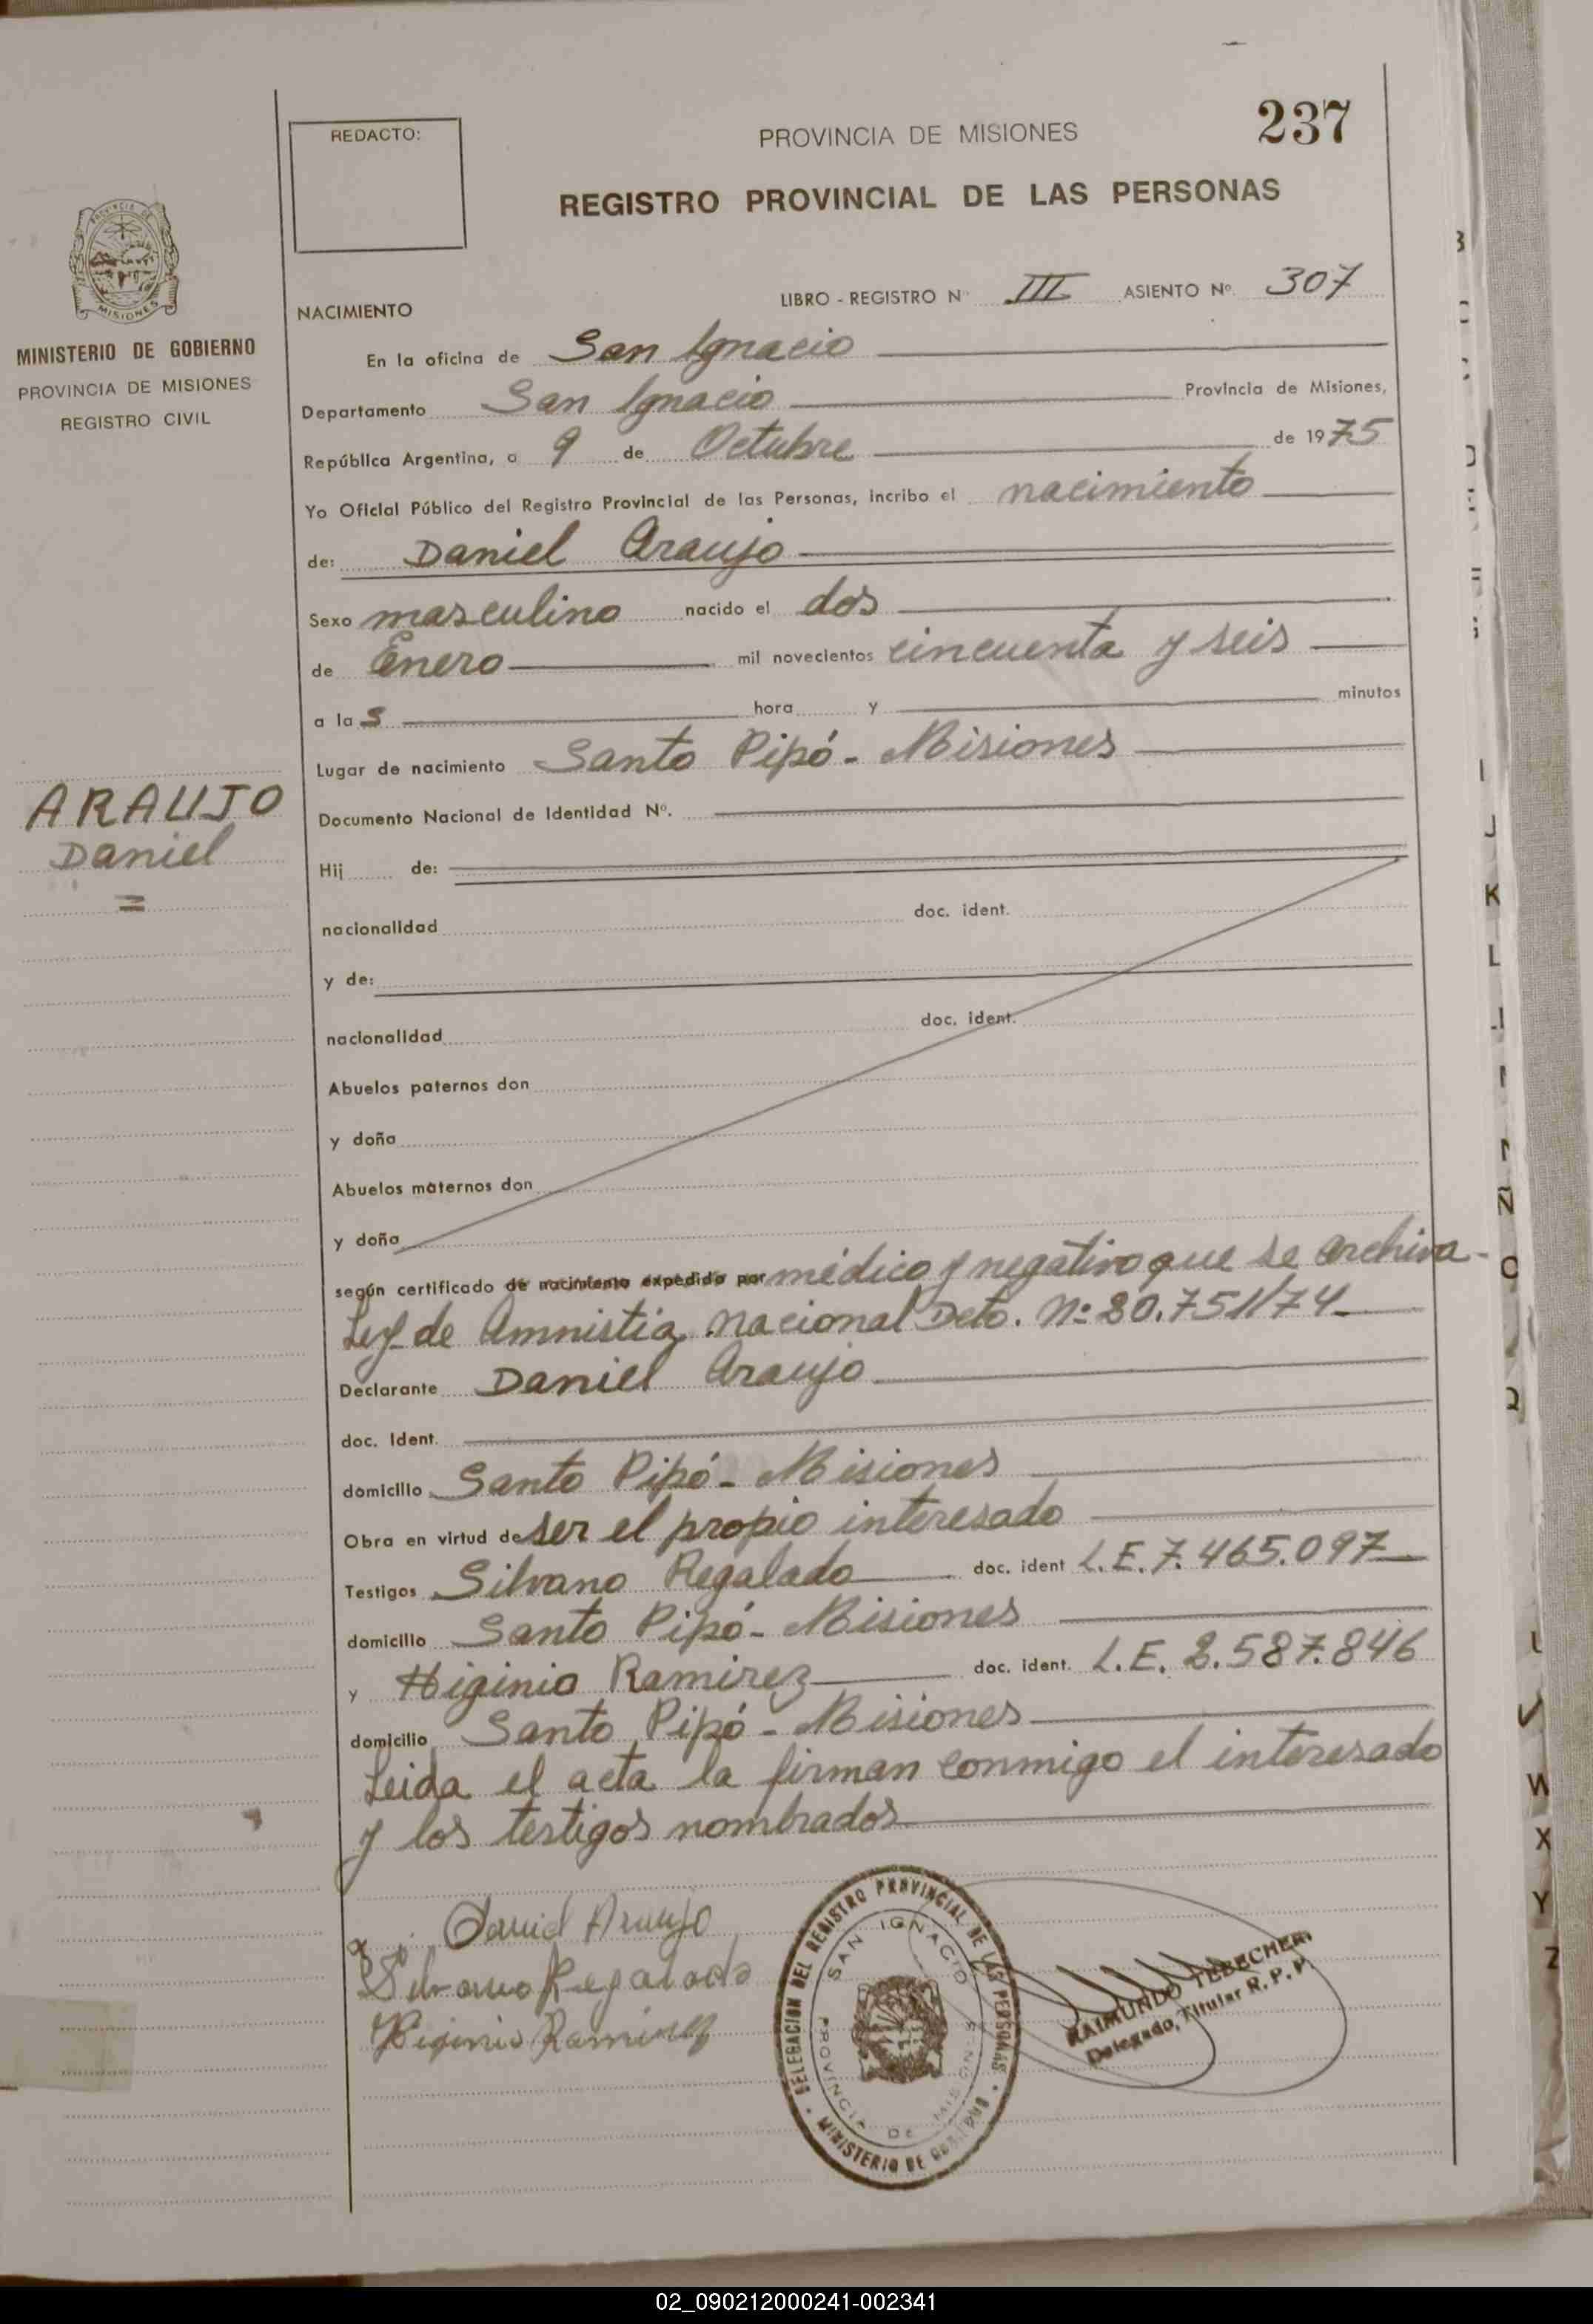 237
REDACTO:
PROVINCIA DE MISIONES
REGISTRO PROVINCIAL DE LAS PERSONAS
PROVINCIA DE
MISIONES
MINISTERIO DE GOBIERNO
PROVINCIA DE MISIONES
REGISTRO CIVIL
ARAUJO
Daniel
NACIMIENTO
LIBRO - REGISTRO Nº III ASIENTO Nº. 307
En la oficina de San Ignacio
Departamento San Ignacio Provincia de Misiones,
República Argentina, a 9 de Octubre de 1975
Yo Oficial Público del Registro Provincial de las Personas, incribo el nacimiento
de: Daniel Araujo
Sexo masculino nacido el dos
de Enero mil novecientos cincuenta y seis
a la s hora y minutos
Lugar de nacimiento Santo Pipó - Misiones
Documento Nacional de Identidad Nº.
Hij de:
nacionalidad doc. ident.
y de:
nacionalidad doc. ident.
Abuelos paternos don
y doña
Abuelos maternos don
y doña
según certificado de nacimiento expedido por médico y negativo que se archiva -
Ley de Amnistia nacional Deto. Nº 20.751/74
Declarante Daniel Araujo
doc. Ident.
domicilio Santo Pipó - Misiones
Obra en virtud de ser el propio interesado
Testigos Silvano Regalado doc. ident L.E. 7.465.097
domicilio Santo Pipó - Misiones
y Higinio Ramirez doc. ident. L.E. 2.587.846
domicilio Santo Pipó - Misiones
Leida el acta la firman conmigo el interesado
y los testigos nombrados
Daniel Araujo
Silvano Regalado
Higinio Ramirez
DELEGACION DEL REGISTRO PROVINCIAL DE LAS PERSONAS
SAN IGNACIO
PROVINCIA DE MISIONES
MINISTERIO DE GOBIERNO
RAIMUNDO TEBECHERI
Delegado Titular R. P. P.
K
L
Ñ
W
X
Y
Z
02_090212000241-002341